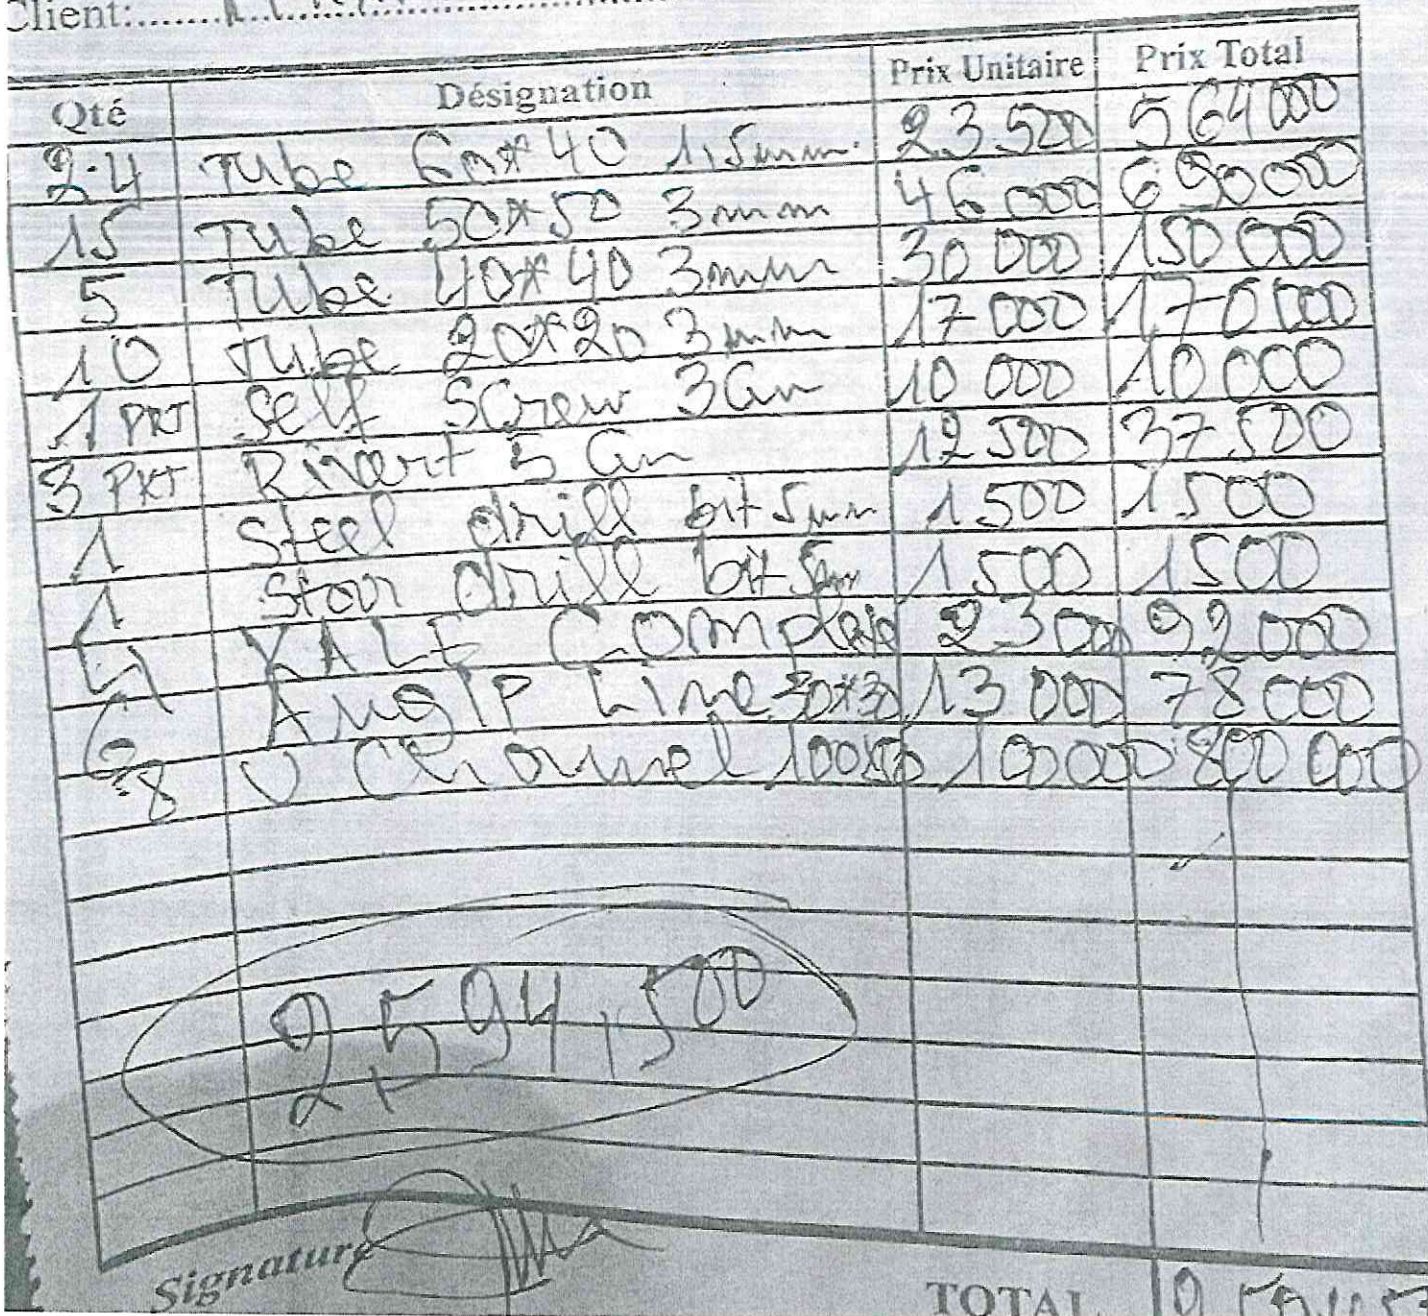 Client:
Qté Désignation Prix Unitaire Prix Total
24 Tube 60*40 1,5mm 23 500 564 000
15 Tube 50*50 3mm 46 000 690 000
5 Tube 40*40 3mm 30 000 150 000
10 Tube 20*20 3mm 17 000 170 000
1 PKT Self Screw 3cm 10 000 10 000
3 PKT Rivert 5cm 12 500 37 500
1 Steel drill bit 5mm 1 500 1 500
1 Ston drill bit 5mm 1 500 1500
4 YALE Complete 23 000 92 000
6 Angle Line 30*30 13 000 78 000
8 U Channel 100 100 000 800 000
2,594,500
Signature
TOTAL